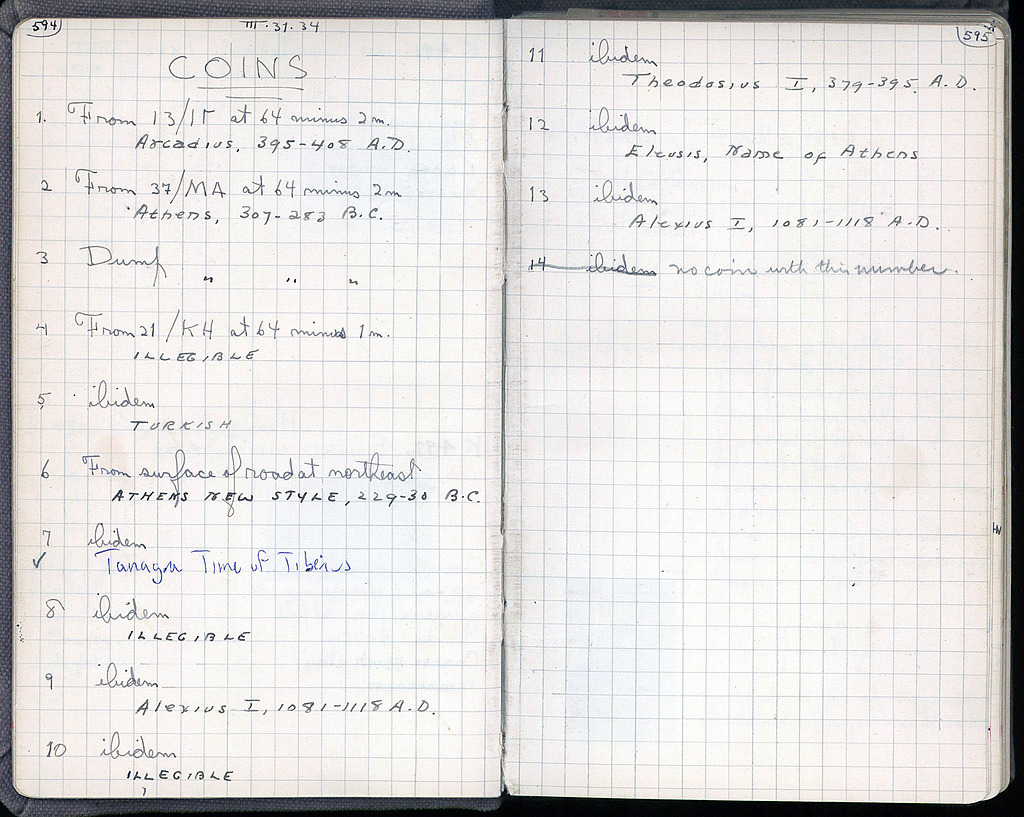 594
III.31.34
COINS
1. From 13/ΙΓ at 64 minus 2m.
Arcadius, 395-408 A.D.
2 From 37/MA at 64 minus 2m
Athens, 307-283 B.C.
3 Dump
" " "
4 From 21/KH at 64 minus 1m.
ILLEGIBLE
5. ibidem
TURKISH
6 From surface of road at northeast
ATHENS NEW STYLE, 229-30 B.C.
7 ibidem
✓ Tanagra Time of Tiberius
8 ibidem
ILLEGIBLE
9 ibidem
Alexius I, 1081-1118 A.D.
10 ibidem
ILLEGIBLE
595
11 ibidem
Theodosius I, 379-395. A.D.
12 ibidem
Eleusis, Name of Athens
13 ibidem
Alexius I, 1081-1118 A.D.
14 ibidem no coin with this number.